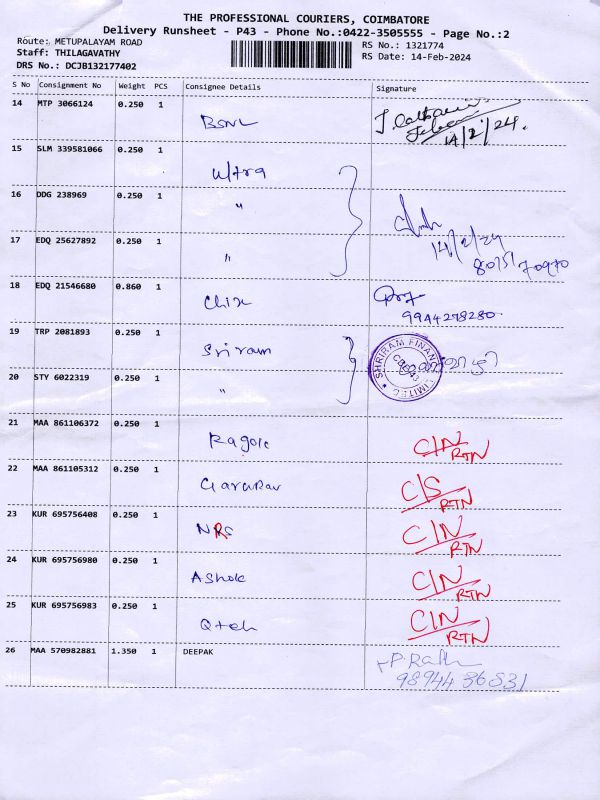 THE PROFESSIONAL COURIERS, COIMBATORE
Delivery Runsheet - P43 - Phone No.:0422-3505555 - Page No.:2
Route: METUPALAYAM ROAD
Staff: THILAGAVATHY
DRS No.: DCJB132177402
RS No.: 1321774
RS Date: 14-Feb-2024
S No Consignment No Weight PCS Consignee Details Signature
14 MTP 3066124 0.250 1 BSNL
14/2/24.
15 SLM 339581066 0.250 1 Ultra
16 DDG 238969 0.250 1 "
14/2/24
17 EDQ 25627892 0.250 1 "
18 EDQ 21546680 0.860 1
9944278280
19 TRP 2081893 0.250 1 Sriram
SHRIRAM FINANCE LIMITED
20 STY 6022319 0.250 1 "
21 MAA 861106372 0.250 1 C/N
RTN
22 MAA 861105312 0.250 1 C/S
RTN
23 KUR 695756408 0.250 1 NRS C/N
RTN
24 KUR 695756980 0.250 1 Ashok C/N
RTN
25 KUR 695756983 0.250 1 C/N
RTN
26 MAA 570982881 1.350 1 DEEPAK
98944 36831